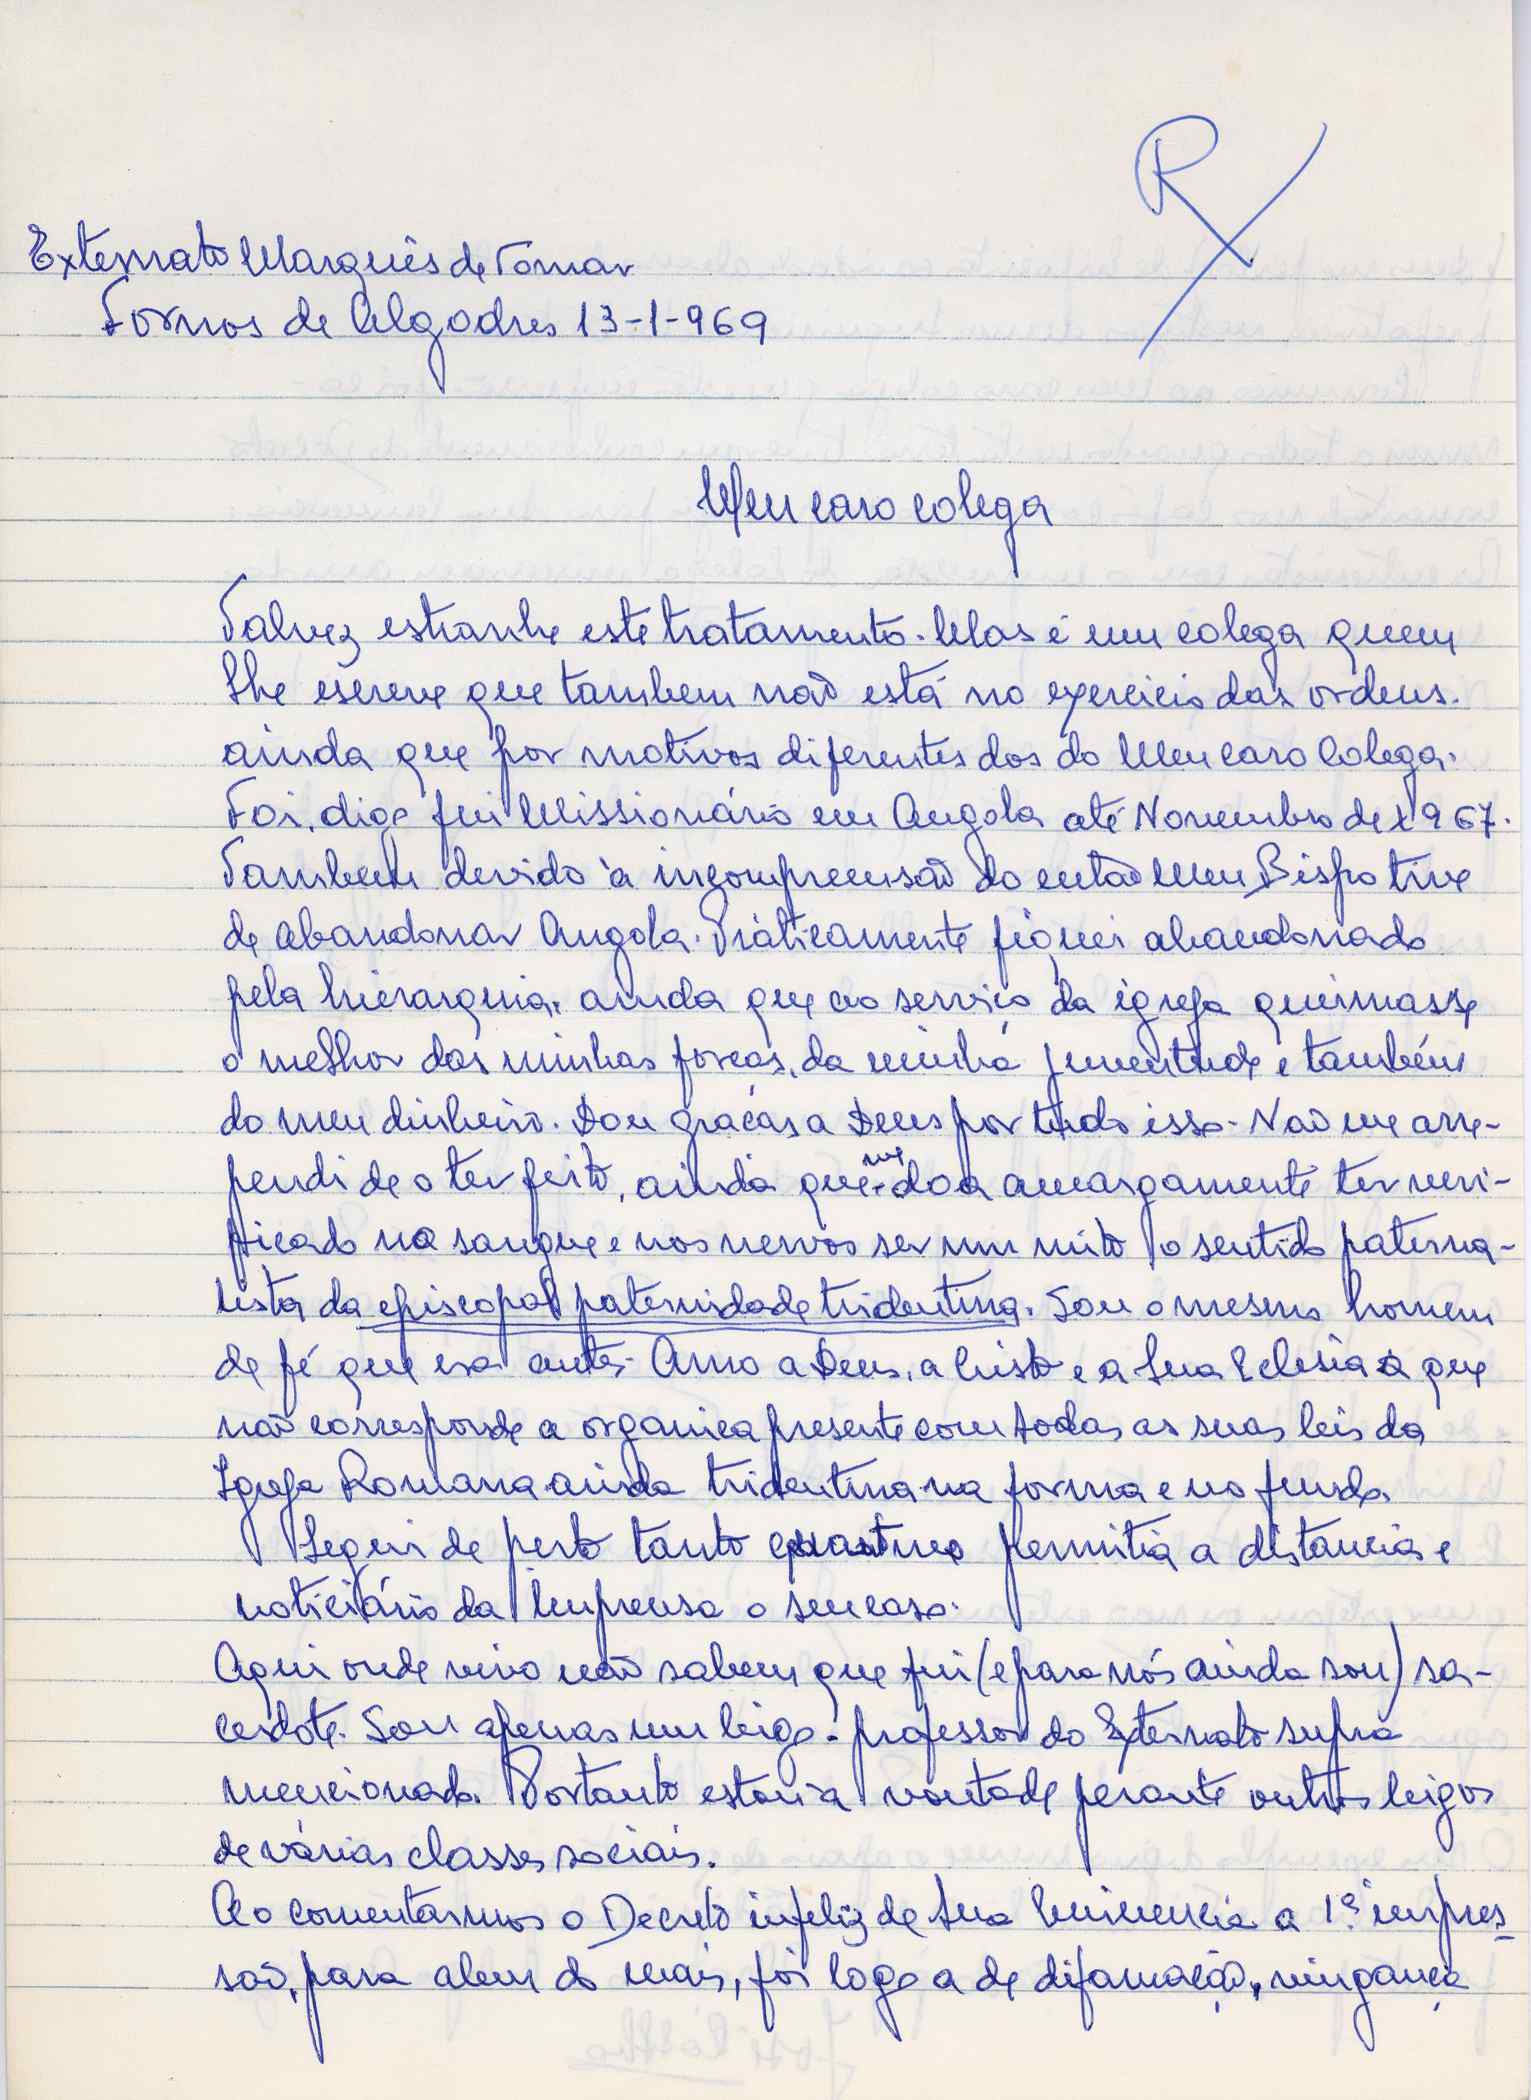 R
Externato Marquês de Tomar
Fornos de Algodres 13-1-969
Meu caro colega
Talvez estranhe este tratamento. Mas é um colega quem
lhe escreve que tambem não está no exercicio das ordens.
ainda que por motivos diferentes dos do Meu caro Colega.
Foi, digo fui Missionário em Angola até Novembro de 1967.
Tambem devido à incompreensão do então Meu Bispo tive
de abandonar Angola. Pràticamente fiquei abandonado
pela hierarquia, ainda que ao serviço da igreja queimasse
o melhor das minhas forças, da minha juventude e também
do meu dinheiro. Dou graças a Deus por tudo isso. Não me arre-
pendi de o ter feito, ainda que me doa amargamente ter veri-
ficado no sangue e nos nervos ser um mito o sentido paterna-
lista da episcopal paternidade tridentina. Sou o mesmo homem
de fé que era antes. Amo a Deus, a Cristo e a Sua Eclesia a que
não corresponde a organica presente com todas as suas leis da
Igreja Romana ainda tridentina na forma e no fundo.
Segui de perto tanto quanto me permitia a distancia e
noticiário da Imprensa o seu caso.
Aqui onde vivo não sabem que fui (e para nós ainda sou) sa-
cerdote. Sou apenas um leigo - professor do Externato supra
mencionado. Portanto estou à vontade perante outros leigos
de várias classes sociais.
Ao comentarmos o Decreto infeliz de Sua Eminencia a 1ª impres-
são, para alem do mais, foi logo a de difamação, vingança